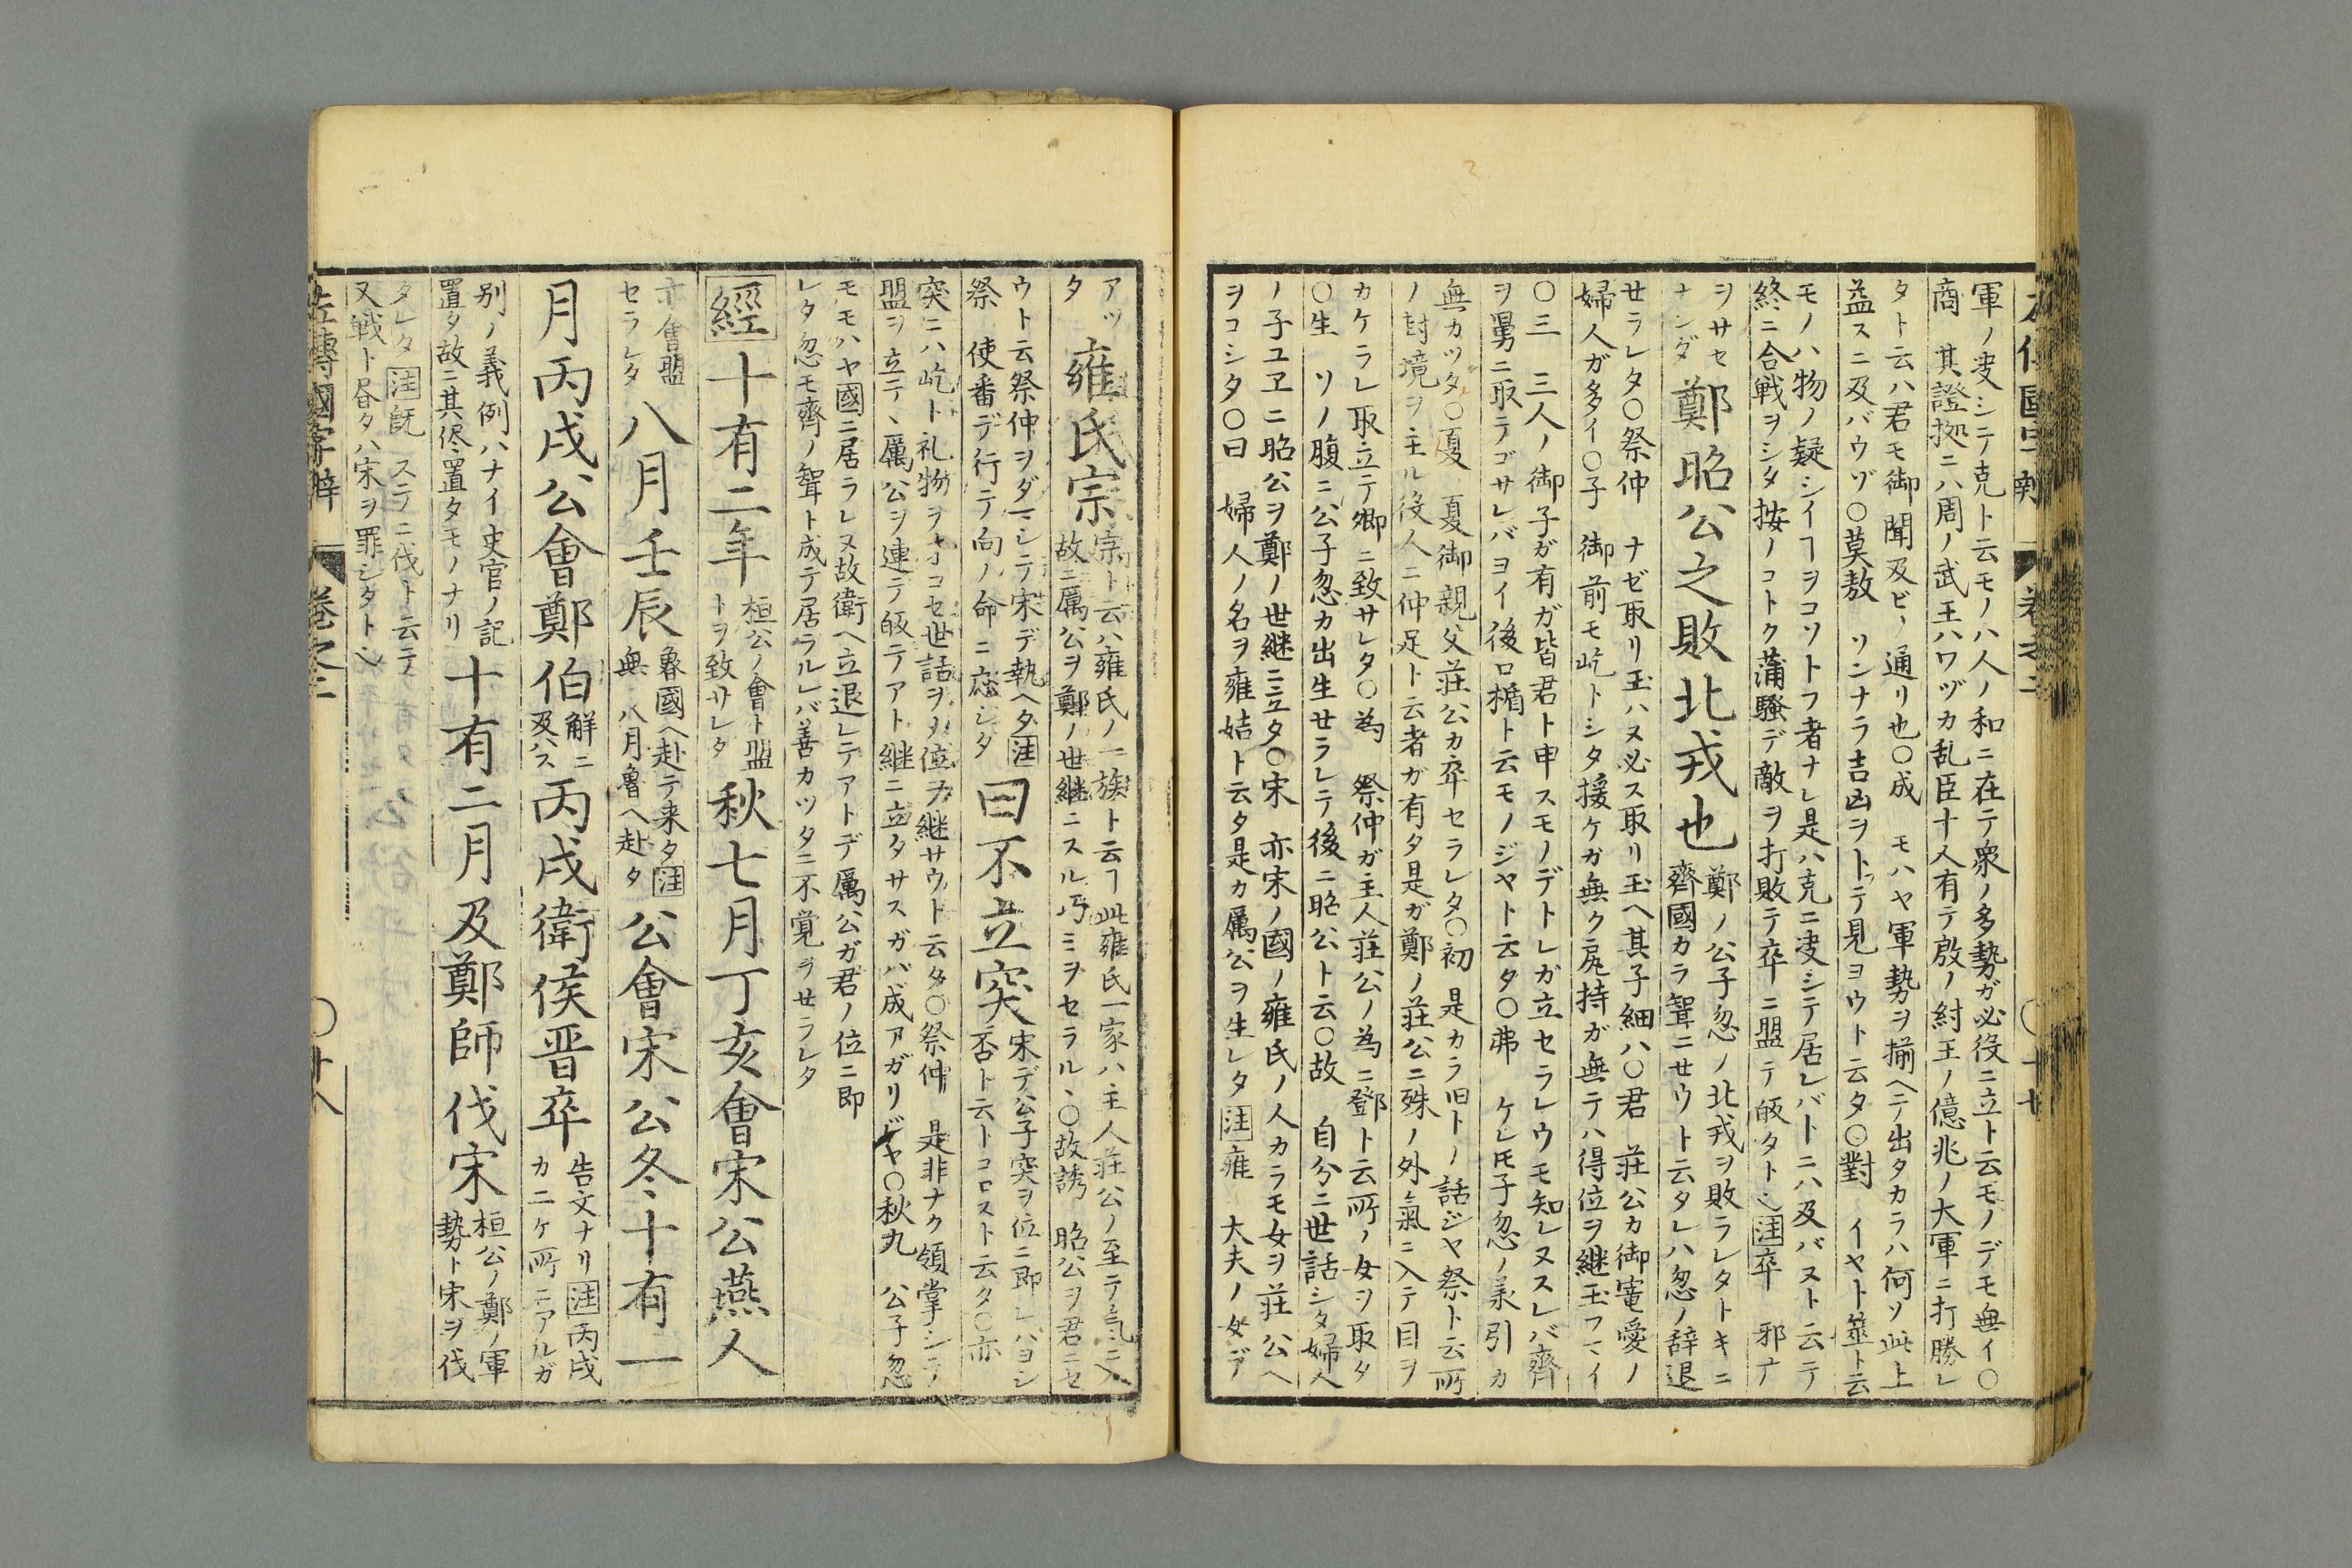 左傳國字辯 卷之二 〇廿七
軍ノ克シテ克ト云モノハ人ノ和ニ在テ衆ノ多勢ガ必役ニ立ト云モノデモ無イ〇
商 其證拠ニハ周ノ武王ハワヅカ乱臣十人有テ殷ノ紂王ノ億兆ノ大軍ニ打勝レ
タト云ハ君モ御聞及ビノ通リ也〇成 モハヤ軍勢ヲ揃ヘテ出タカラハ何ソ此上
益スニ及バウゾ〇莫敖 ソンナラ吉凶ヲトテ見ヨウト云タ〇對 イヤト筮ト云
モノハ物ノ疑シイヿヲコソトフ者ナレ是ハ克ニ決シテ居レバトニハ及バヌト云テ
終ニ合戦ヲシタ按ノコトク蒲騒デ敵ヲ打敗テ卒ニ盟テ皈タト也注卒 邪ナ
ヲサセ
ナンダ
鄭昭公之敗北戎也
鄭ノ公子忽ノ北戎ヲ敗ラレタトキニ
齊國カラ聟ニセウト云タレハ忽ノ辞退
せラレタ〇祭仲 ナゼ取リ玉ハヌ必ス取リ玉ヘ其子細ハ〇君 荘公カ御寵愛ノ
婦人ガ多イ〇子 御前モ屹トシタ援ケガ無ク㞍持ガ無テハ得位ヲ継玉フマイ
〇三 三人ノ御子ガ有ガ皆君ト申スモノデトレガ立セラレウモ知レヌスレバ齊
ヲ舅ニ取テゴサレバヨイ後ロ楯ト云モノジヤト云タ〇弗 ケレ𪜈子忽ノ羕引カ
無カツタ〇夏 夏御親父荘公カ卒セラレタ〇初 是カラ旧トノ話ジヤ祭ト云所
ノ封境ヲ主ル役人ニ仲足ト云者ガ有タ是ガ鄭ノ荘公ニ殊ノ外氣ニ入テ目ヲ
カケラレ取立テ卿ニ致サレタ〇為 祭仲ガ主人荘公ノ為ニ鄧ト云所ノ女ヲ取タ
〇生 ソノ腹ニ公子忽カ出生せラレテ後ニ昭公ト云〇故 自分ニ世話シタ婦人
ノ子ユヱニ昭公ヲ鄭ノ世継ニ立タ〇宋 亦宋ノ國ノ雍氏ノ人カラモ女ヲ荘公ヘ
ヲコシタ〇曰 婦人ノ名ヲ雍姞ト云タ是カ厲公ヲ生レタ注雍 大夫ノ女デ
アツ
タ
雍氏宗
宗ト云ハ雍氏ノ一族ト云ヿ此雍氏一家ハ主人荘公ノ至テ氣ニ入
故ニ厲公ヲ鄭ノ世継ニスル巧ミヲセラル丶〇故誘 昭公ヲ君ニセ
ウト云祭仲ヲダマシテ宋デ執ヘタ注
祭 使番デ行テ向ノ命ニ應シタ
曰不立突
宋デ公子突ヲ位ニ即レハヨシ
否ト云トコロスト云タ〇亦
突ニハ屹ト礼物ヲオコセ世話ヲメ位ヲ継サウト云タ〇祭仲 是非ナク領掌シテ
盟ヲ立テ丶厲公ヲ連テ皈テアト継ニ立タサスガバ成アガリジヤ〇秋九 公子忽
モモハヤ國ニ居ラレヌ故衛ヘ立退レテアトデ厲公ガ君ノ位ニ即
レタ忽モ齊ノ聟ト成テ居ラルレバ善カツタニ不覚ヲせラレタ
經十有二年
桓公ノ會ト盟
トヲ致サレタ
秋七月丁亥會宋公燕人
亦會盟
セラレタ
八月壬辰
魯國ヘ赴テ来タ注
無 八月魯ヘ赴タ
公會宋公冬十有一
月丙戌公會鄭伯
解ニ
及ハス
丙戌衛侯晋卒
告文ナリ注丙戌
カ二ケ所ニアルガ
別ノ義例ハナイ史官ノ記
置タ故ニ其侭置タモノナリ
十有二月及鄭師伐宋
桓公ノ鄭ノ軍
勢ト宋ヲ伐
タレタ注既 スデニ伐ト云テ
又戦ト昼タハ宋ヲ罪シタト也
左傳國字辯 卷之二 〇廿八